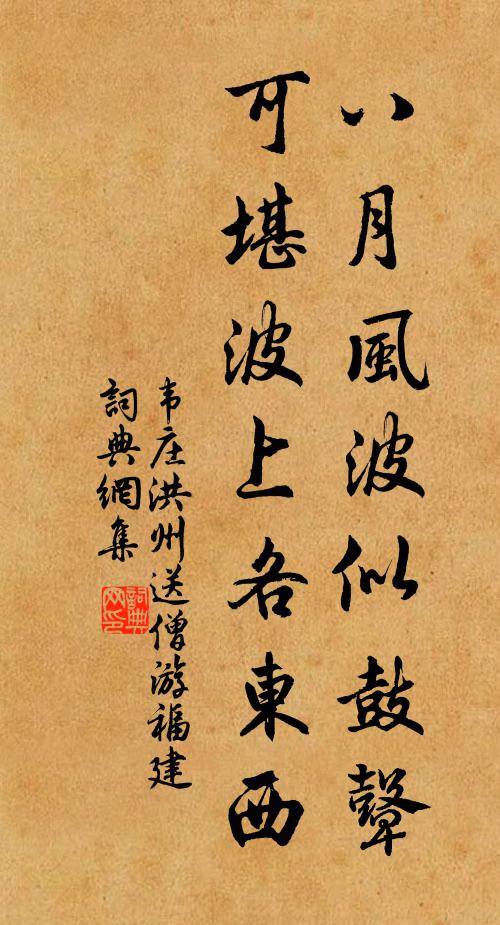 八月風波似鼓鼙
可堪波上各東西
韦庄洪州送僧游福建
詞典網集
詞典
网印